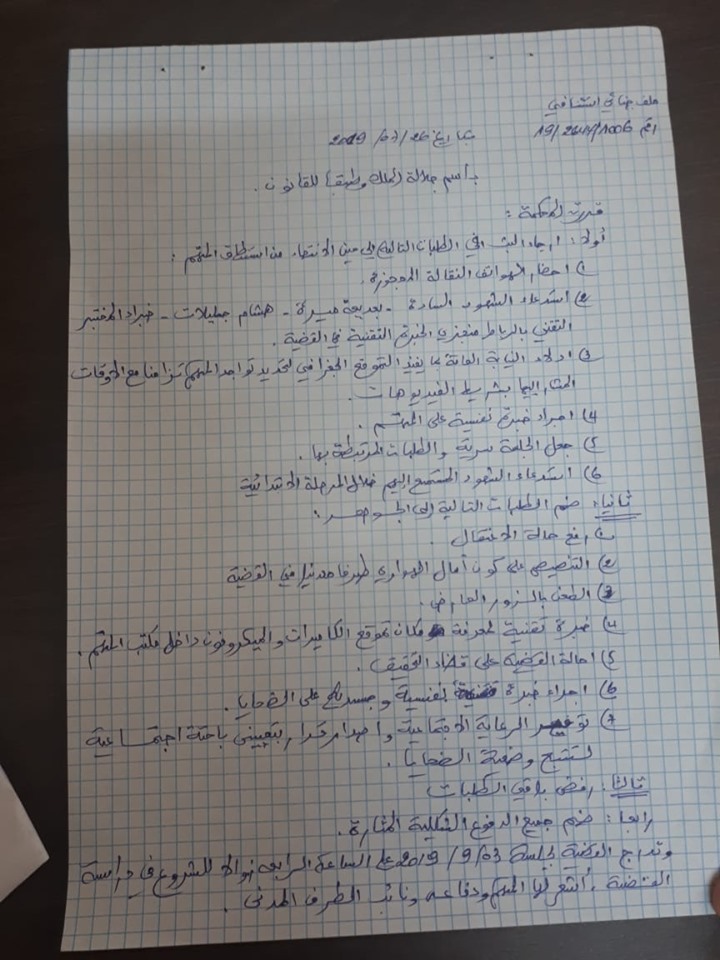 ملف جنائي استئنافي
رقم 1006/2611/19
بتاريخ 26/07/2019
باسم جلالة الملك وطبقا للقانون.
قررت المحكمة :
أولا: ارجاء البث في الطلبات التالية إلى حين الانتهاء من استنطاق المتهم :
1) احضار الهواتف النقالة المحجوزة.
2) استدعاء الشهود السادة - هشام جميلات - خبراء المختبر
التقني بالرباط منجزي الخبرة التقنية في القضية.
3) ادلاء النيابة العامة بما يفيد التموقع الجغرافي لتحديد تواجد المتهم تزامنا مع الاوقات
المشار إليها بشريط الفيديوهات.
4) اجراء خبرة نفسية على المتهم.
5) جعل الجلسة سرية والطلبات المرتبطة بها.
6) استدعاء الشهود المستمع إليهم خلال المرحلة الابتدائية
ثانيا: ضم الطلبات التالية إلى الجوهر :
1) رفع حالة الاعتقال.
2) التنصيص على كون أمال الهواري طرفا مدنيا في القضية
3) الطعن بالزور العارض.
4) خبرة تقنية لمعرفة مكان تموقع الكاميرات والميكروفون داخل مكتب المتهم.
5) احالة القضية على قضاء التحقيق.
6) اجراء خبرة نفسية و جسدية على الضحايا.
7) توفير الرعاية الاجتماعية و اصدار قرار بتعيين باحثة اجتماعية
لتتبع وضعية الضحايا.
ثالثا: رفض باقي الطلبات
رابعا: ضم جميع الدفوع الشكلية المثارة.
وتدرج القضية لجلسة 03/9/2019 على الساعة الرابعة زوالا للشروع في دراسة
القضية، أشعر لها المتهم ودفاعه ونائب الطرف المدني.